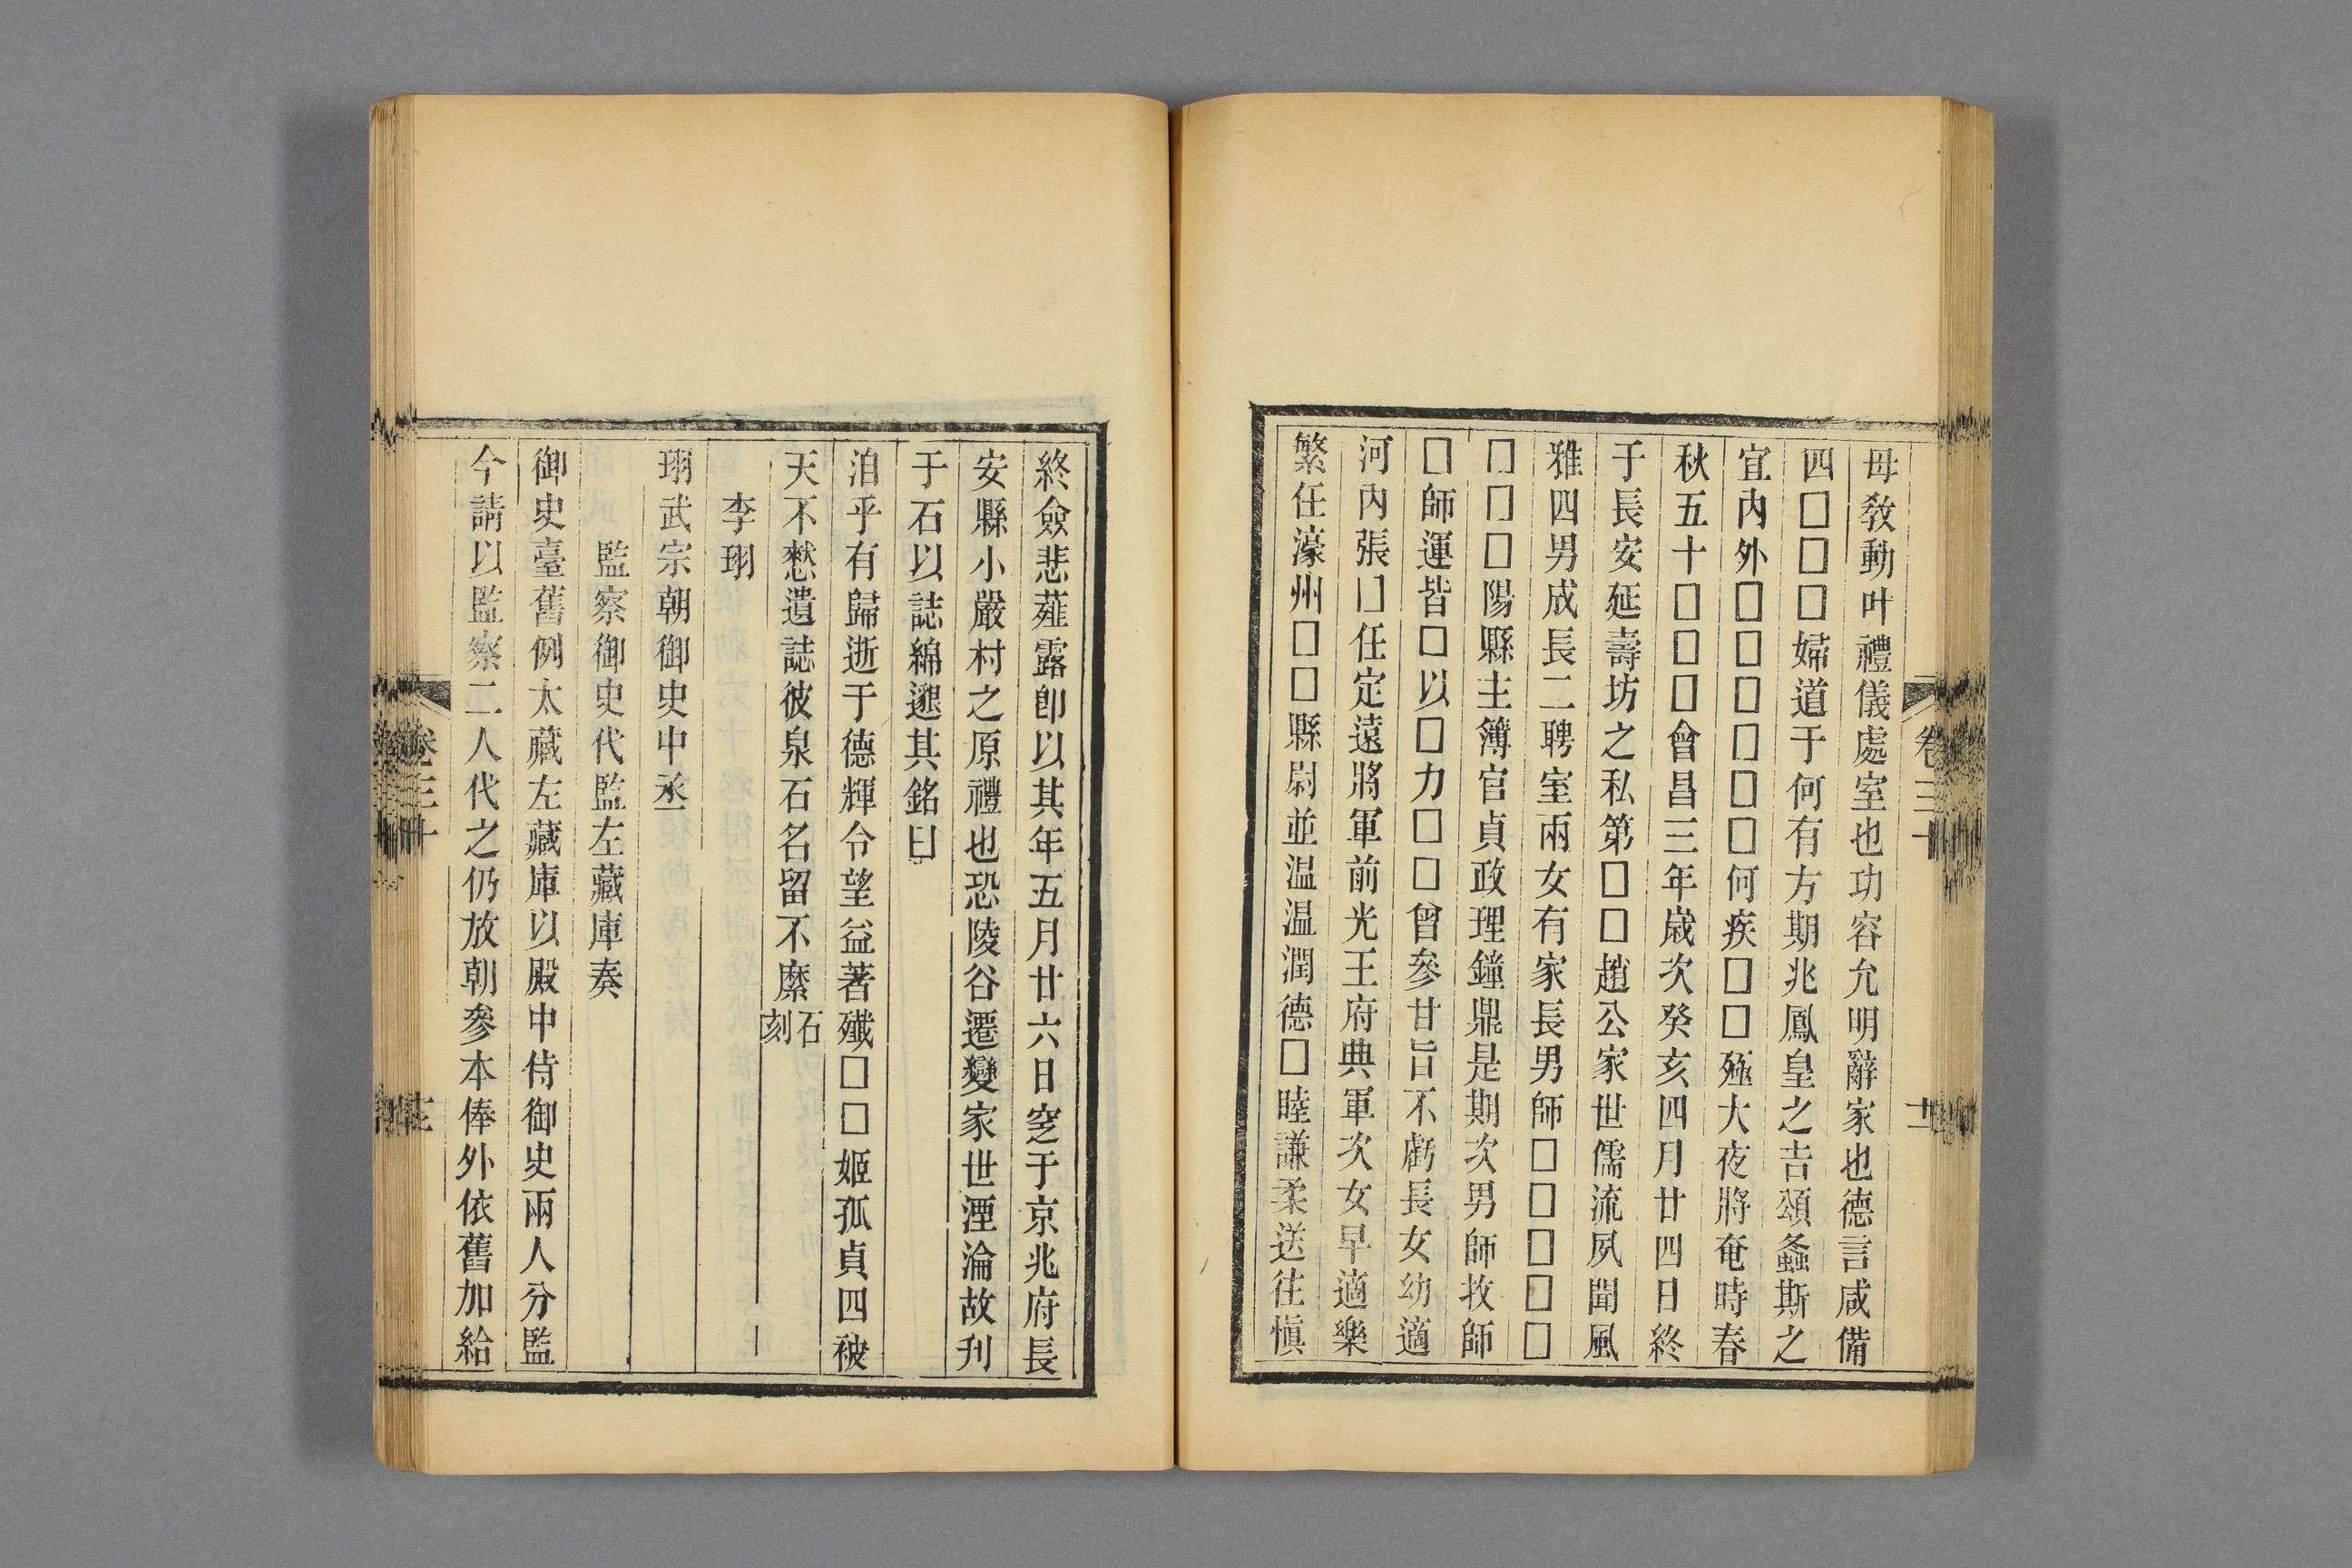 毋敎動叶禮儀處室也功容允明辭家也德言咸備
四□□□婦道于何有方期兆鳳皇之吉頌螽斯之
宜內外□□□□□□何疾□□殛大夜將奄時春
秋五十□□□會昌三年歲次癸亥四月廿四日終
于長安延壽坊之私第□□趙公家世儒流夙聞風
雅四男成長二聘室兩女有家長男師□□□□□
□□□陽縣主簿官貞政理鐘鼎是期次男師牧師
□師運皆□以□力□□曾參甘旨不虧長女幼適
河內張□任定遠將軍前光王府典軍次女早適樂
繁任濠州□□縣尉並温温潤德□睦謙柔送往愼
卷三十
終僉悲薤露卽以其年五月廿六日窆于京兆府長
安縣小嚴村之原禮也恐陵谷遷變家世湮淪故刋
于石以誌綿邈其銘曰
洎乎有歸逝于德輝令望益著殲□□姬孤貞四被
天不憖遺誌彼泉石名留不縻石刻
李珝
珝武宗朝御史中丞
監察御史代監左藏庫奏
御史臺舊例太藏左藏庫以殿中侍御史兩人分監
今請以監察二人代之仍放朝參本俸外依舊加給
卷三十